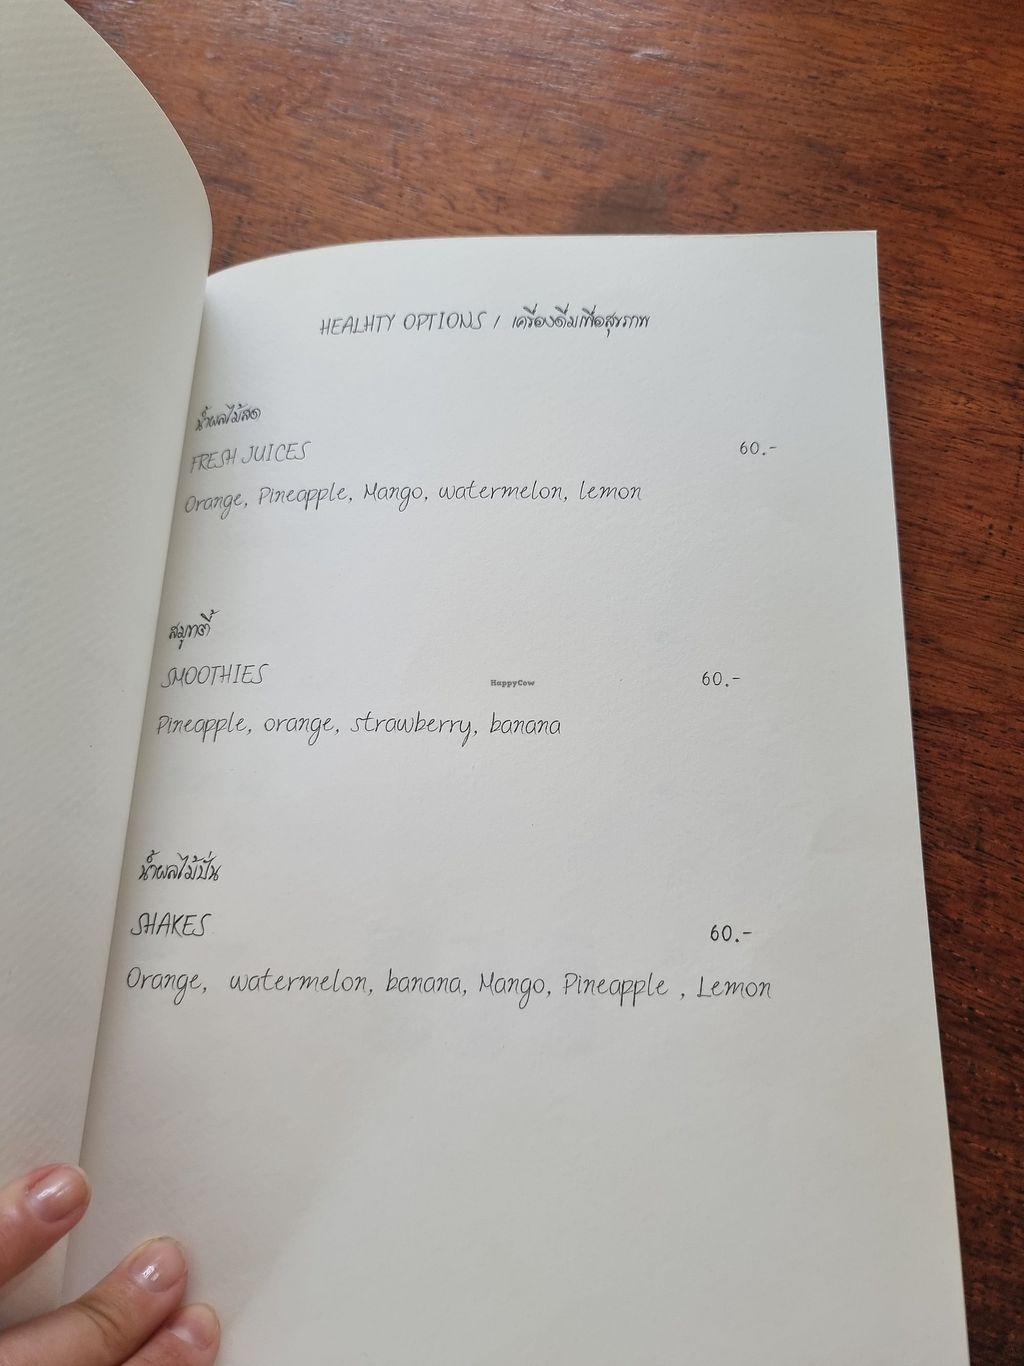 HEALHTY OPTIONS / เครื่องดื่มเพื่อสุขภาพ
น้ำผลไม้สด
FRESH JUICES 60.-
Orange, Pineapple, Mango, watermelon, lemon
สมูทตี้
SMOOTHIES 60.-
HappyCow
Pineapple, orange, strawberry, banana
น้ำผลไม้ปั่น
SHAKES 60.-
Orange, watermelon, banana, Mango, Pineapple , Lemon